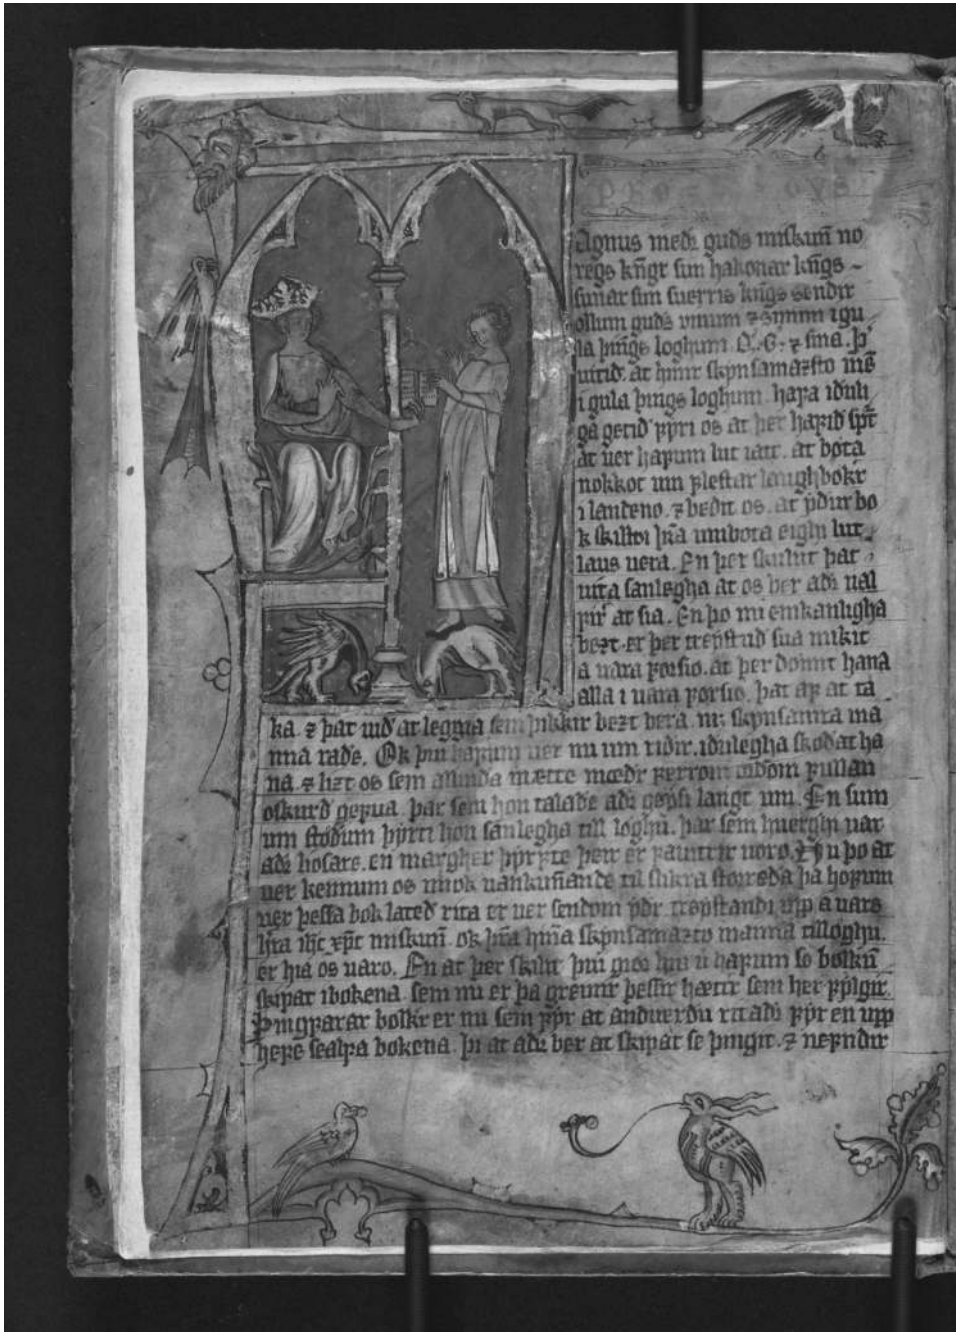 Agnus medꝛ guds miskun̄ no
regs kn̄gr sun hakonar kn̄gs
sunar sun suerris kn̄gs sendir
ollum guds vinum ⁊ synum i gu
la þin̄gs loghum Q. G. ⁊ sina. þ
uitid. at hinir skynsamaꝛsto
i gula þings loghum. haꝼa iduli
ga getid ꝼyri os at þer haꝼid
at uer haꝼum lut iatt. at bøta
nokkot um ꝼlestar laughbøkr
i landeno. ⁊ bedit os. at ydur bo
k skilldi umbota eighi lut
laus uera. En þer skulut þat
uita sanlegha at os ber adꝛ uel
ꝼirir at sia. En þo nu einkanligha
beꝛt er þer treystud sua mikit
a uara ꝼorsio. at þer domt hana
alla i uara ꝼorsio. þat aꝼ at ta
ka. ⁊ þat uid at leggia sem þikkir beꝛt bera. m; skynsamra ma
nna rade. Ok þui haꝼum uer nu um tidir. idulegha skodat ha
na. ⁊ os sem allinda mætte mœdꝛ ꝼullan
oskurd geꝼua. þar sem hon talade adꝛ langt um. En sum
um stodum þyrti hon sanlegha till loghu. þar sem huerghi uar
adꝛ hosare. en margher þyrꝼte þeir er ꝼauitrir uoro. Nu þo at
uer kennum os miok uankun̄ande til slikra storræda þa hoꝼum
uer þessa bok lated rita er uer sendom ydꝛ. treystandi upp a uars
miskun̄. ok skynsamaꝛto manna tilloghu.
er hia os uaro. En at þer skilit þui haꝼum so
skipat i bokena. sem nu er þa greinir þessir hættir sem her ꝼylgir.
Þingꝼarar bolkr er nu sem ꝼyr at anduerdu ritadꝛ ꝼyr en upp
heꝼe sealꝼa bokena. þi at adꝛ ber at skipat se þingit. ⁊ neꝼndir